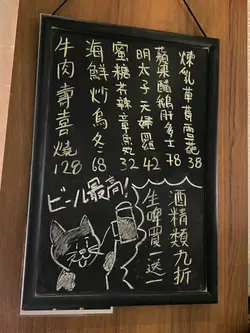 煉乳草莓雪葩 38
蘋果醋鵝肝多士 48
明太子天婦羅 42
蜜糖芥辣章魚丸 32
海鮮炒烏冬 68
牛肉壽喜燒 128
酒精類九折
生啤買一送一
ビール最高!